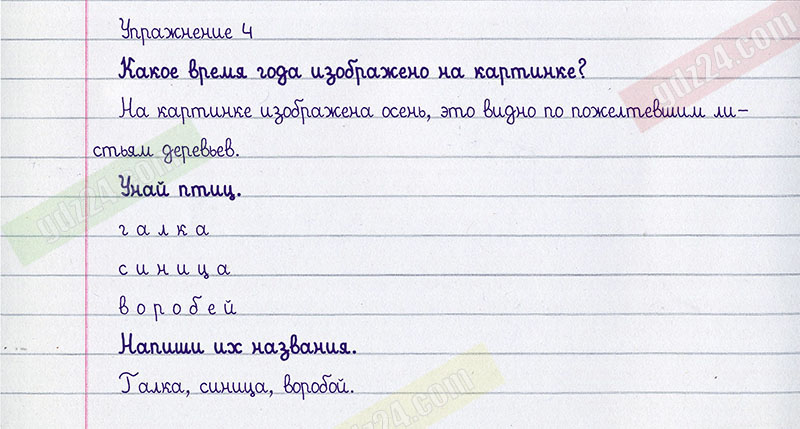 Упражнение 4
Какое время года изображено на картинке?
На картинке изображена осень, это видно по пожелтевшим ли-
стьям деревьев.
Унай птиц.
г а л к а
с и н и ц а
в о р о б е й
Напиши их названия.
Галка, синица, воробой.
gdz24.com
gdz24.com
gdz24.com